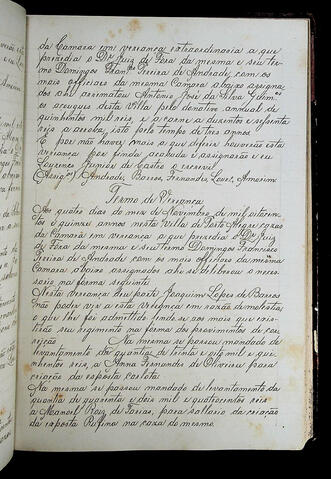 da Camara em vereança extraordinaria a que
prezedio o Dr. Juiz de Fora da mesma e seu ter
mo Domingos Franco Pereira de Andrade com os
mais officiaes da mesma Camara abaixo assigna
dos ahi arrematou Antonio José da Silva
os açougues desta Villa pelo donativo annual de
quinhentos mil reis, e a carne a duzentos e sessenta
reis a arroba, isto pelo tempo de tres annos.
E por não haver mais a que deferir houverão esta
vereança por finda acabada e assignarão e eu
Lourenço Junior de Castro o escrevi
(Assignos) Andrade, Barros, Fernandes, Amorim
Termo de Vereança
Aos quatro dias do mez de Novembro de mil oitocen
tos e quinze annos nesta Villa de Porto Alegre cazas
da Camara em vereança a que prezedio o Dr. Juiz
de Fora da mesma e seu termo Domingos Francisco
Pereira de Andrade com os mais officiaes da mesma
Camara abaixo assignados ahi se deliberou o neces
sario na forma seguinte
Nesta vereança deu parte Joaquim Lopes de Barros
não poder vir a esta vereança em razão de molestia,
o que lhe foi admittido
seu regimento na forma dos provimentos de cor
reição. Na mesma se passou mandado de
levantamento da quantia de trinta e oito mil e qui
nhentos reis, a Anna Fernandes de Oliveira para
criação da exposta Carlota.
Na mesma se passou mandado de levantamento da
quantia de quarenta e dois mil e quatrocentos reis
a Manoel Roiz de Farias, para sallario da criação
da exposta Ruffina na caza do mesmo.